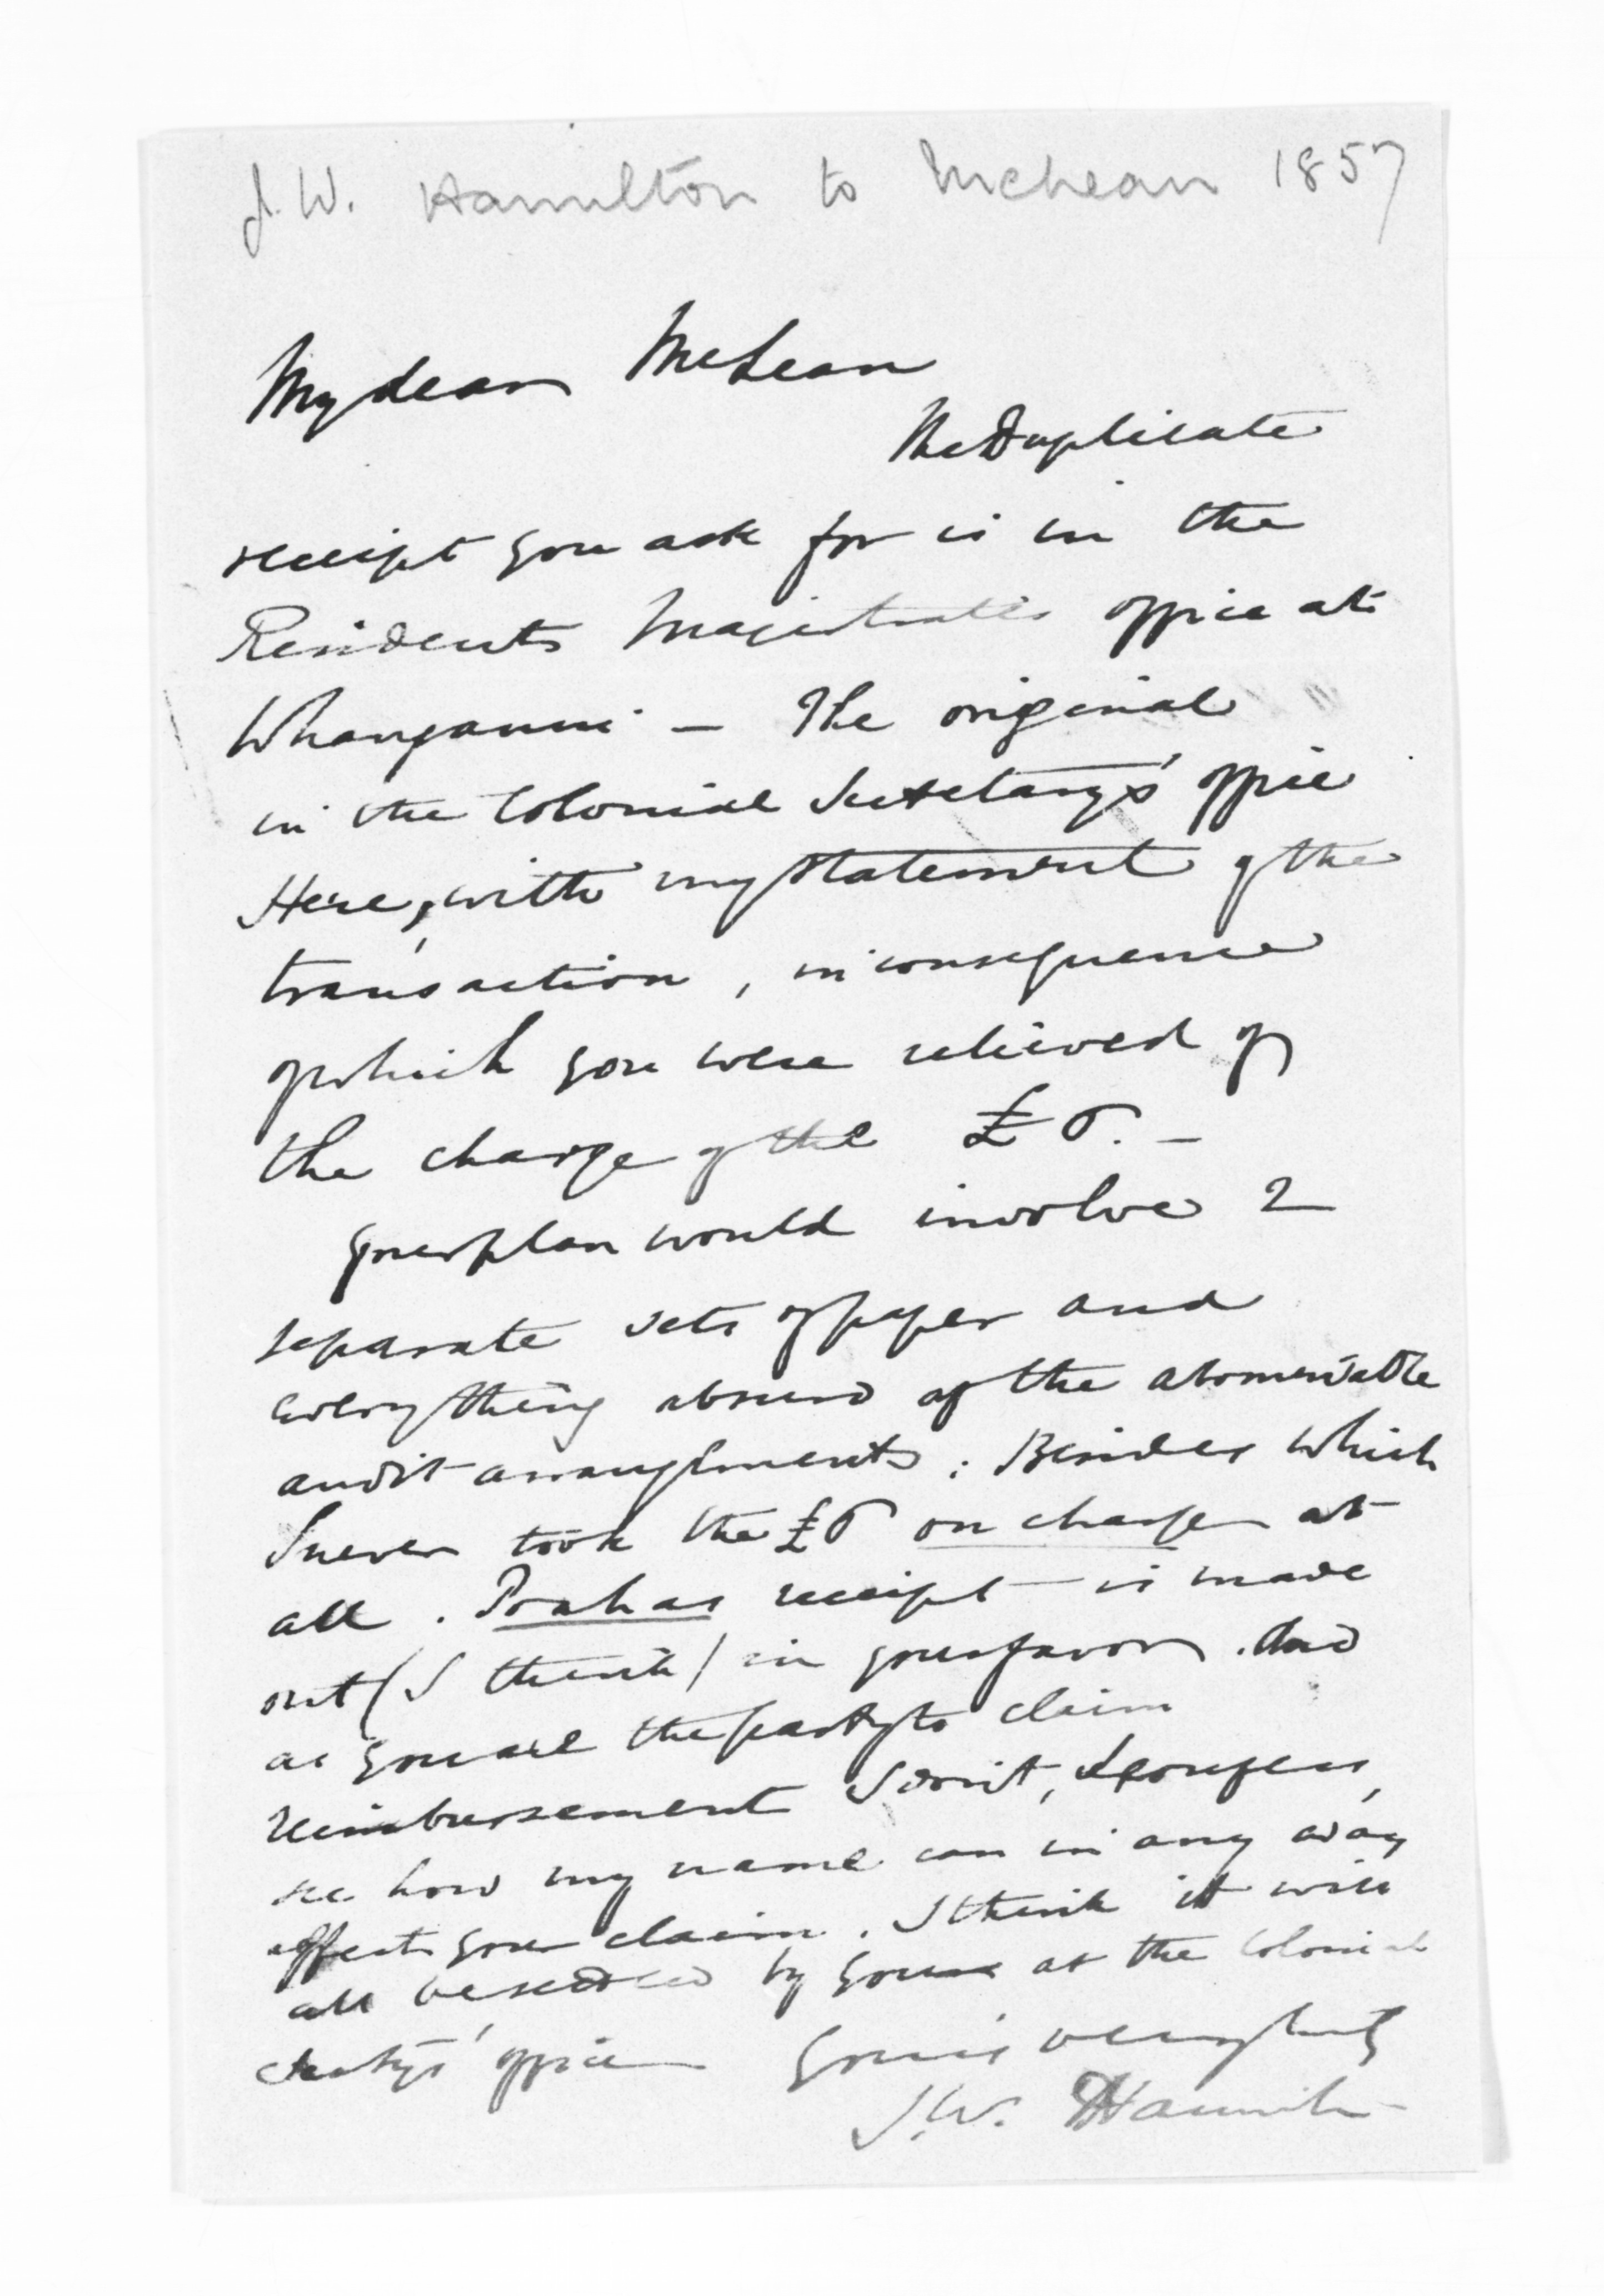 J.W. Hamilton to McLean 1857
My dear McLean
The Duplicate
receipt you ask for is in the
Residents Magistrates office at
Whanganui - The original
in the Colonial Secretary's office
Here, with my statement of the
transaction, in consequence
of which you were relieved of
the charge of the £5. -
your plan would involve 2
separate sets of paper and
everything absurd of the abominable
audit arrangements: Besides which
I never took the £5 on charge at
all. receipt is made
out (I think) in your favor. And
as you are the party to claim
reimbursement I don't, I confess,
see how my name can in any way
affect your claim. I think it will
all be by you at the Colonial
office Yours very truly
J.W. Hamilton